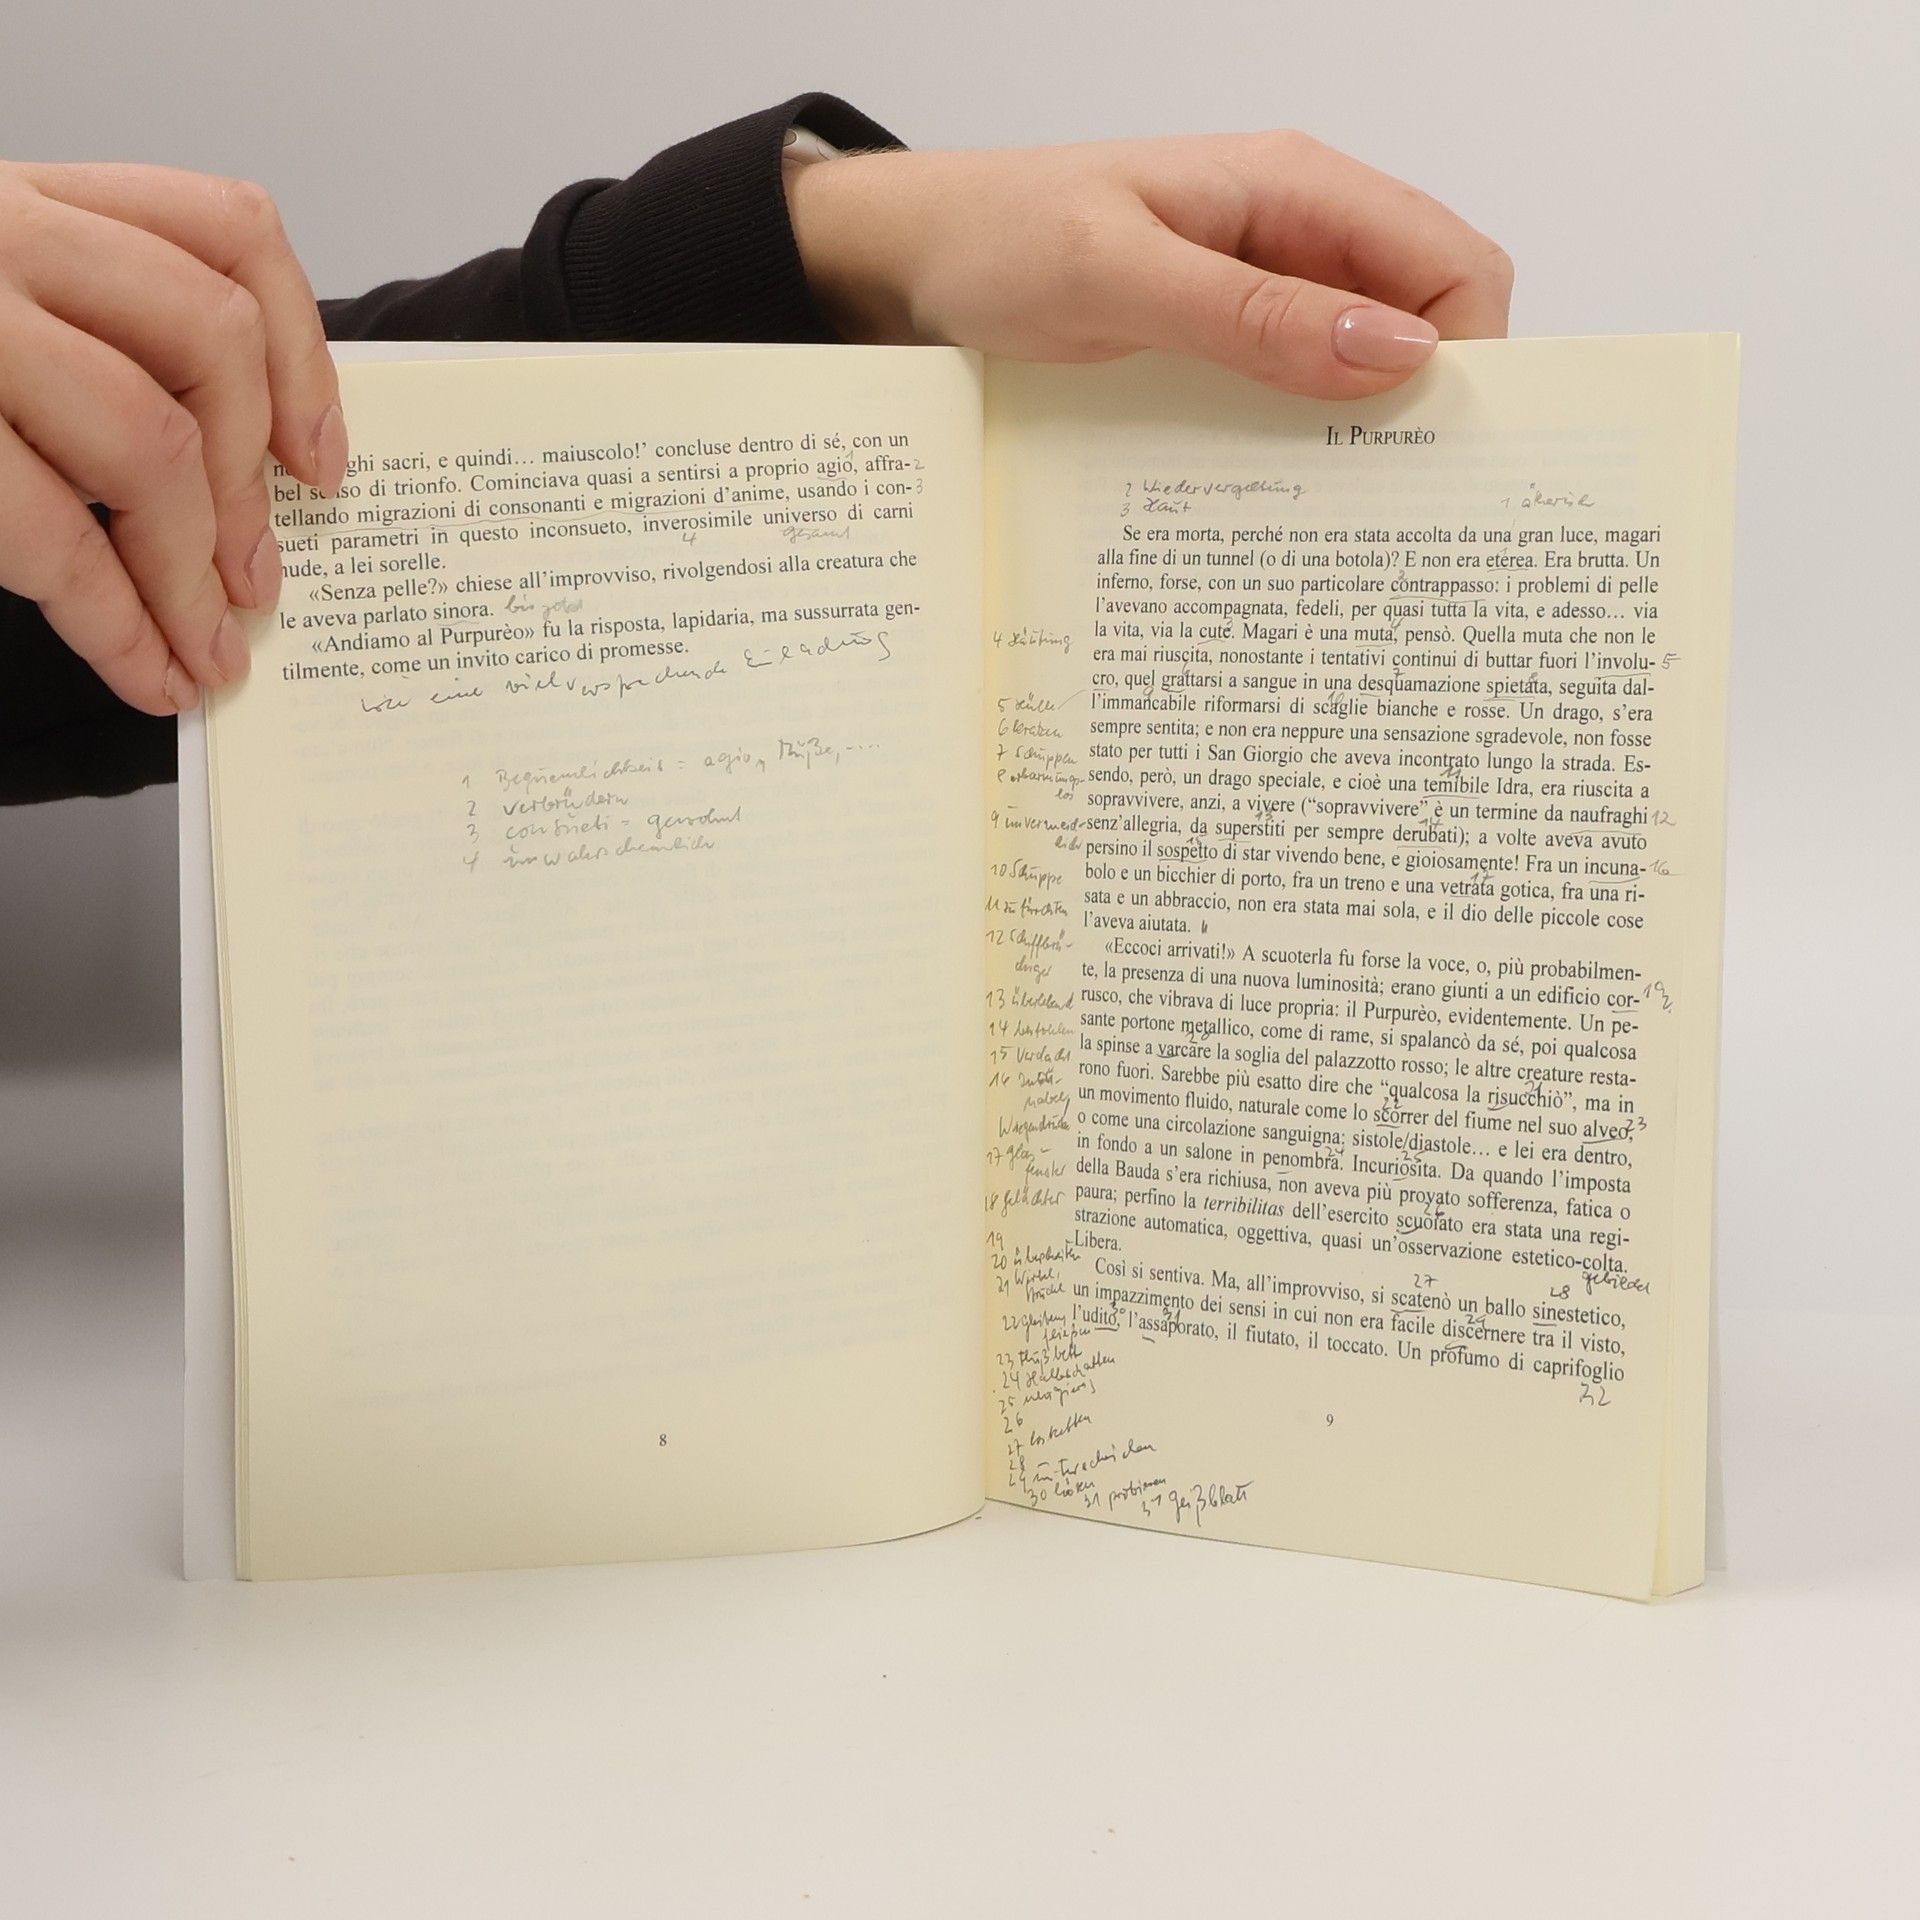 ghi sacri, e quindi… maiuscolo!’ concluse dentro di sé, con un
bel senso di trionfo. Cominciava quasi a sentirsi a proprio agio, affra-
tellando migrazioni di consonanti e migrazioni d’anime, usando i con-
sueti parametri in questo inconsueto, inverosimile universo di carni
nude, a lei sorelle.
«Senza pelle?» chiese all’improvviso, rivolgendosi alla creatura che
le aveva parlato sinora.
«Andiamo al Purpurèo» fu la risposta, lapidaria, ma sussurrata gen-
tilmente, come un invito carico di promesse.
wie eine vielversprechende Einladung
1 Bequemlichkeit = agio, Muße, ....
2 verbrüdern
3 consueti = gewohnt
4 unwahrscheinlich
8
Il Purpurèo
2 Wiedervergeltung
3 Haut
1 ätherisch
Se era morta, perché non era stata accolta da una gran luce, magari
alla fine di un tunnel (o di una botola)? E non era eterea. Era brutta. Un
inferno, forse, con un suo particolare contrappasso: i problemi di pelle
l’avevano accompagnata, fedeli, per quasi tutta la vita, e adesso… via
la vita, via la cute. Magari è una muta, pensò. Quella muta che non le
era mai riuscita, nonostante i tentativi continui di buttar fuori l’involu-
cro, quel grattarsi a sangue in una desquamazione spietata, seguita dal-
l’immancabile riformarsi di scaglie bianche e rosse. Un drago, s’era
sempre sentita; e non era neppure una sensazione sgradevole, non fosse
stato per tutti i San Giorgio che aveva incontrato lungo la strada. Es-
sendo, però, un drago speciale, e cioè una temibile Idra, era riuscita a
sopravvivere, anzi, a vivere (“sopravvivere” è un termine da naufraghi
senz’allegria, da superstiti per sempre derubati); a volte aveva avuto
persino il sospetto di star vivendo bene, e gioiosamente! Fra un incuna-
bolo e un bicchier di porto, fra un treno e una vetrata gotica, fra una ri-
sata e un abbraccio, non era stata mai sola, e il dio delle piccole cose
l’aveva aiutata.
«Eccoci arrivati!» A scuoterla fu forse la voce, o, più probabilmen-
te, la presenza di una nuova luminosità; erano giunti a un edificio cor-
rusco, che vibrava di luce propria: il Purpurèo, evidentemente. Un pe-
sante portone metallico, come di rame, si spalancò da sé, poi qualcosa
la spinse a varcare la soglia del palazzotto rosso; le altre creature resta-
rono fuori. Sarebbe più esatto dire che “qualcosa la risucchiò”, ma in
un movimento fluido, naturale come lo scorrer del fiume nel suo alveo,
o come una circolazione sanguigna: sistole/diastole… e lei era dentro,
in fondo a un salone in penombra. Incuriosita. Da quando l’imposta
della Bauda s’era richiusa, non aveva più provato sofferenza, fatica o
paura; perfino la terribilitas dell’esercito scuoiato era stata una regi-
strazione automatica, oggettiva, quasi un’osservazione estetico-colta.
Libera.
gebildet
Così si sentiva. Ma, all’improvviso, si scatenò un ballo sinestetico,
un impazzimento dei sensi in cui non era facile discernere tra il visto,
l’udito, l’assaporato, il fiutato, il toccato. Un profumo di caprifoglio
4 Häutung
5 Hülle
6 kratzen
7 Schuppen
8 erbarmungs-
los
9 unvermeid-
lich
10 Schuppe
11 zu fürchten
12 Schiffbrü-
chiger
13 überlebend
14 bestohlen
15 Verdacht
16 Inku-
nabel,
Wiegendruck
17 Glas-
fenster
18 Gelächter
19
20 überschreiten
21 Wirbel,
Strudel
22 gleiten,
fließen
23 Flußbett
24 Halbschatten
25 neugierig
26
27 losketten
28
29 unterscheiden
30 hören
31 probieren
31 Geißblatt
9